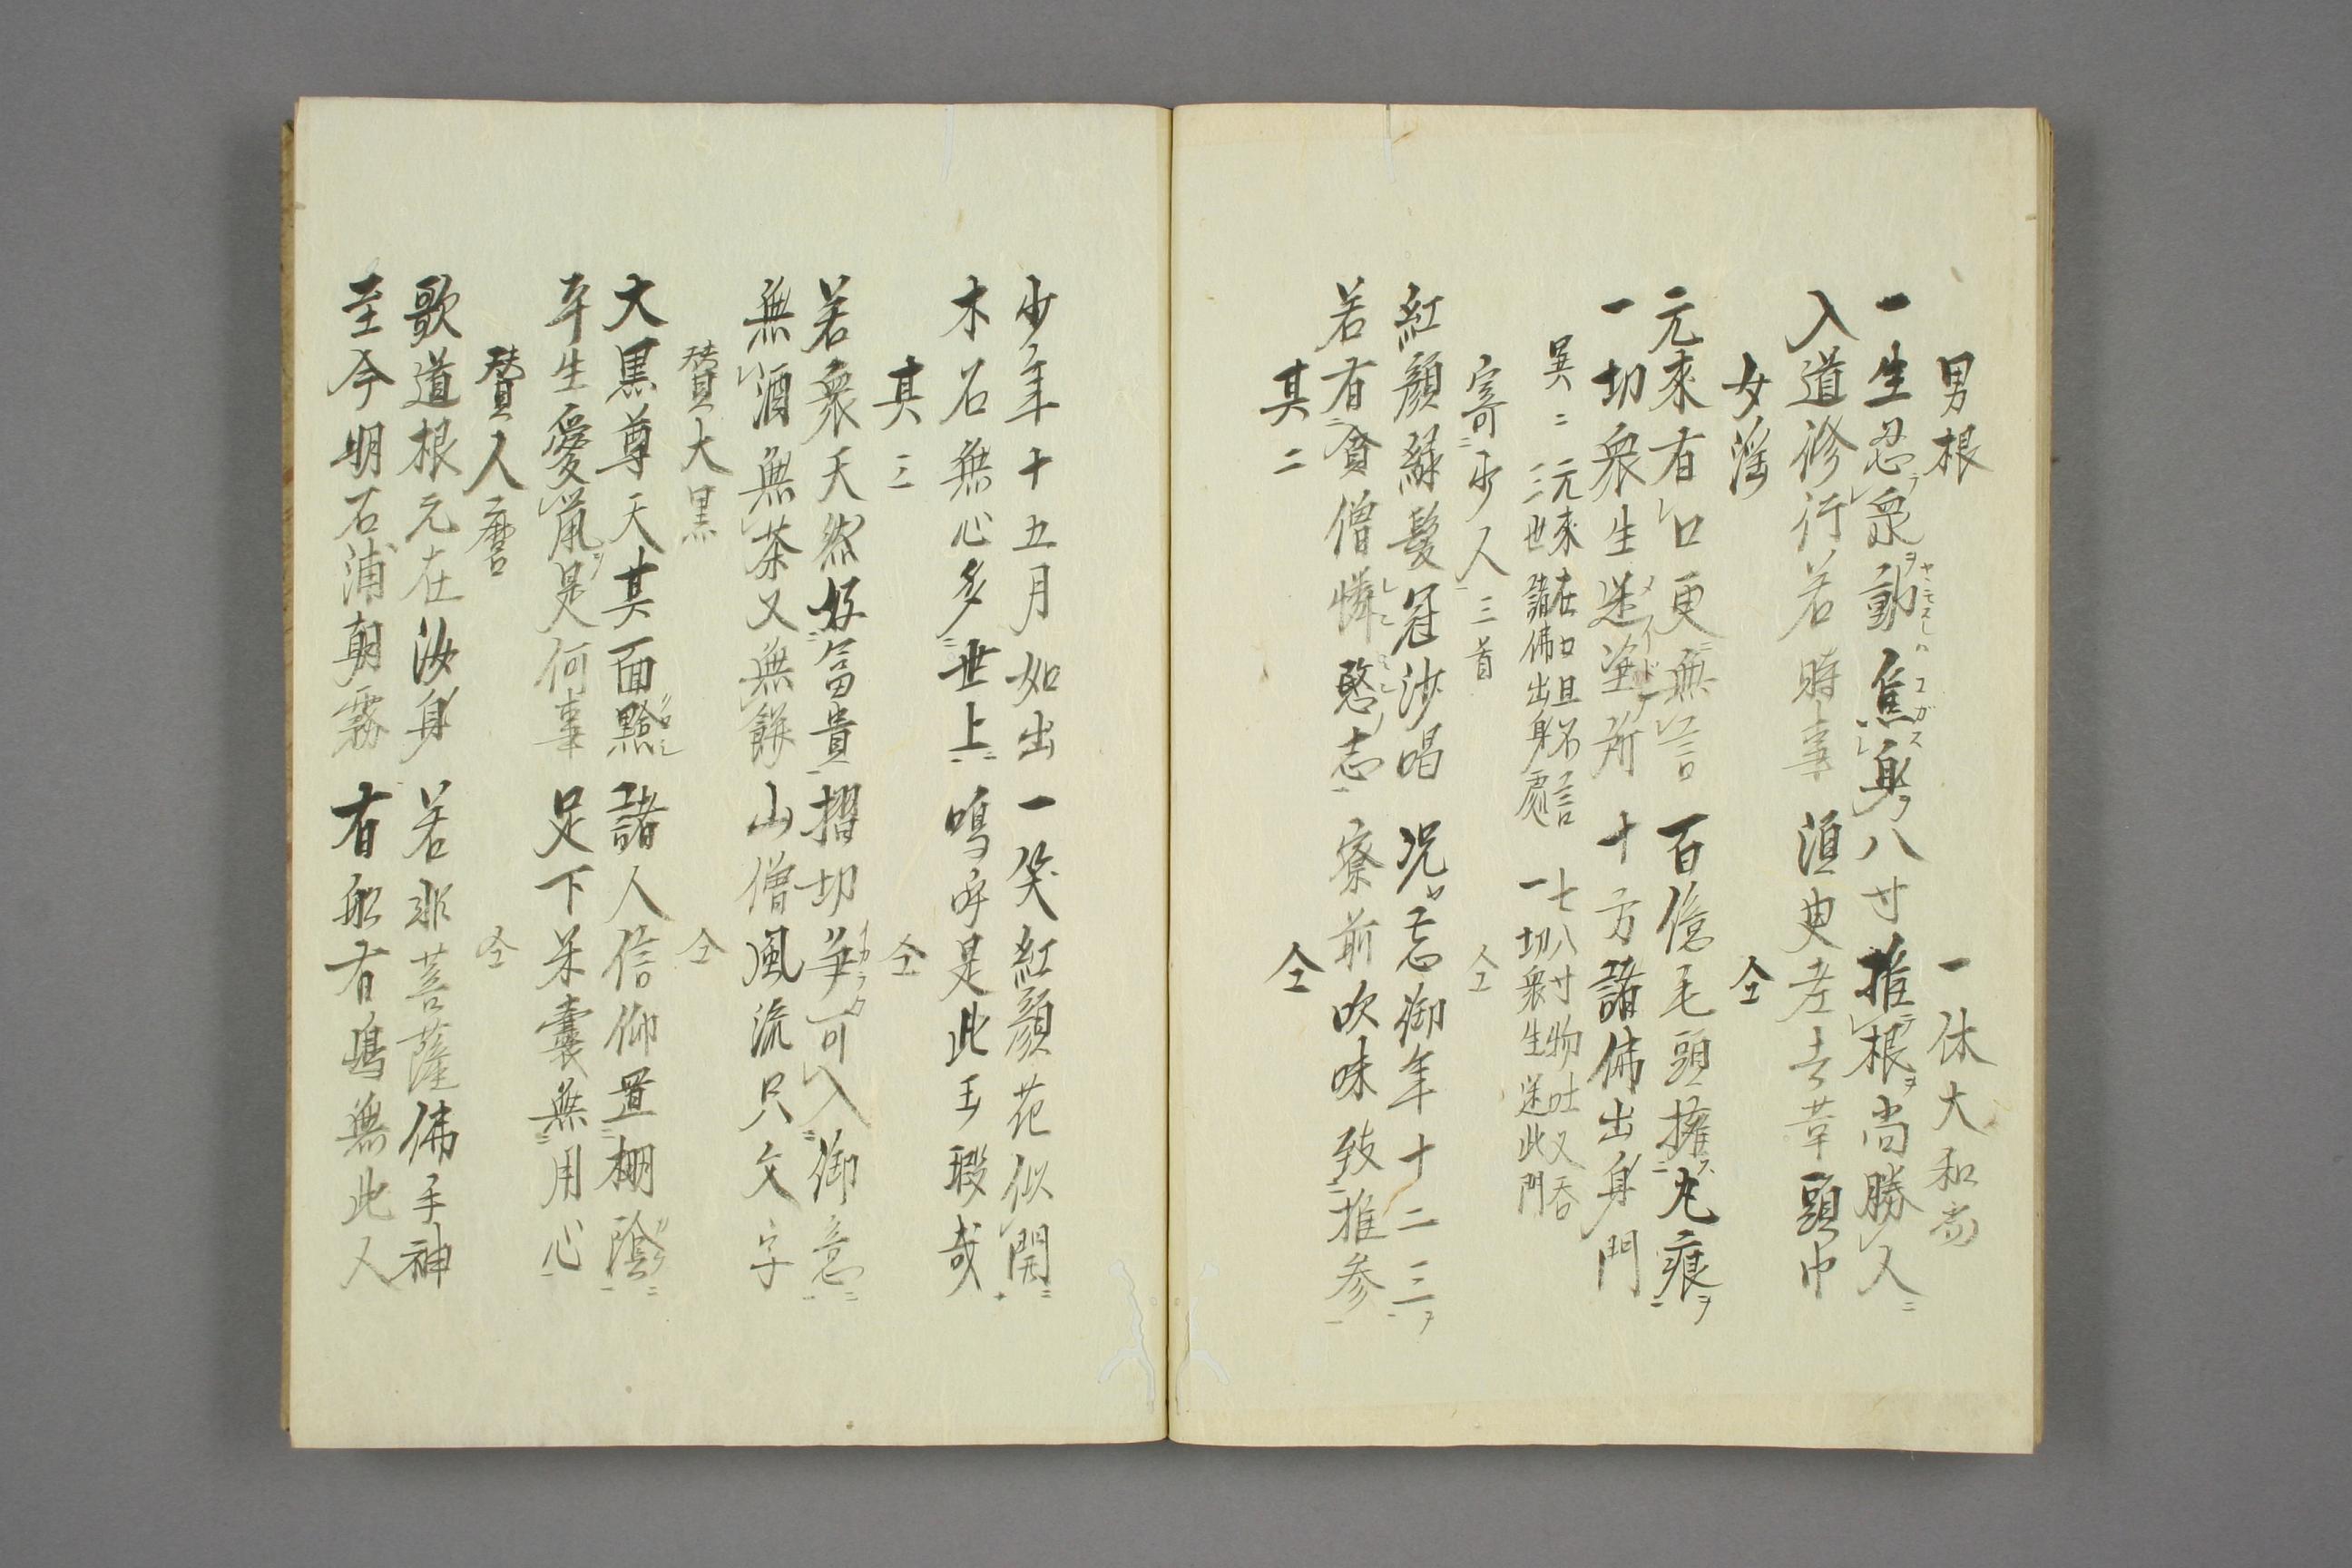 男根 一休大和尚
一生忍衆動焦身八寸推根尚勝人
入道修行若時事須臾老去葦頭巾
女淫 仝
元來有口更無言百億毛頭擁丸痕
一切衆生迷塗所十方諸佛出身門
異ニ 元來在口且不言 七八寸物吐又呑
三世諸佛出身處 一切衆生迷此門
寄少人 三首 仝
紅顔緑髪冠沙喝況忘御年十二三
若有貪僧憐愍志寮前吹味致推参
其二 仝
少年十五月如出一笑紅顔花似開
木石無心多世上嗚呼是此玉瑕哉
其三 仝
若衆天然好富貴摺切争可入御意
無酒無茶又無餅山僧風流只文字
賛大黒 仝
大黒尊天其面黔諸人信仰置棚陰
平生愛鼠是何事足下米嚢無用心
賛人麿 仝
歌道根元在汝身若非菩薩佛手神
至今明石浦朝霧有船有嶋無此人